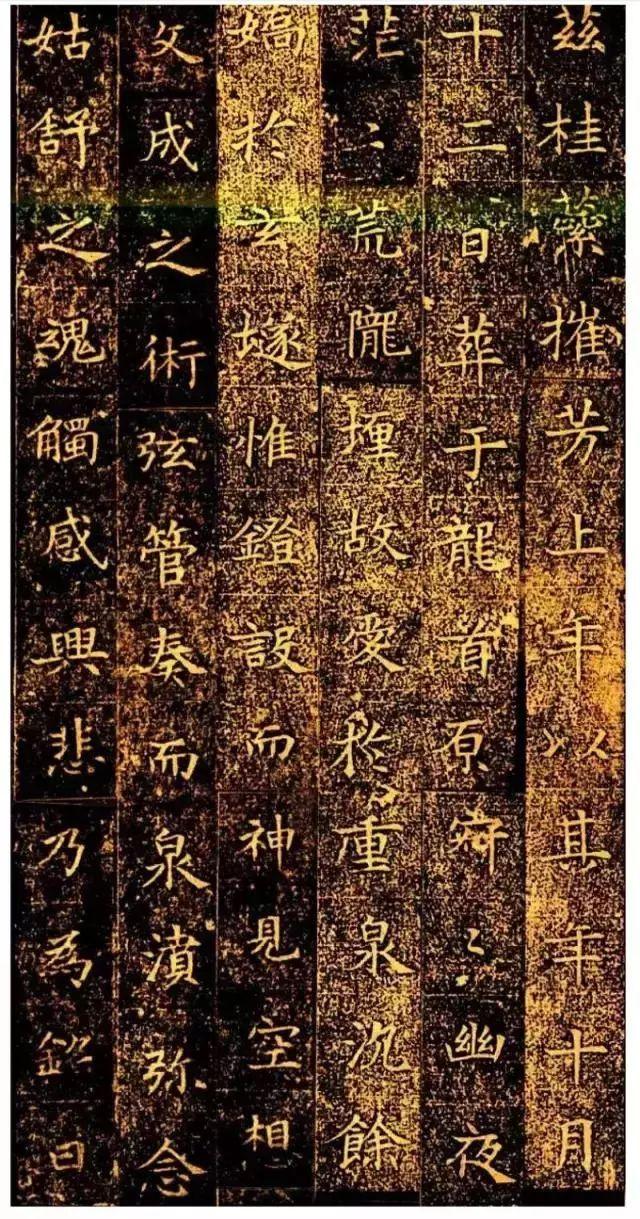 茲桂蘂摧芳上年以其年十月
十二日葬于龍首原寂〻幽夜
茫〻荒隴埋故愛於重泉沉餘
嬌於玄埏惟鐙設而神見空想
文成之術弦管奏而泉濆弥念
姑舒之魂觸感興悲乃為銘曰